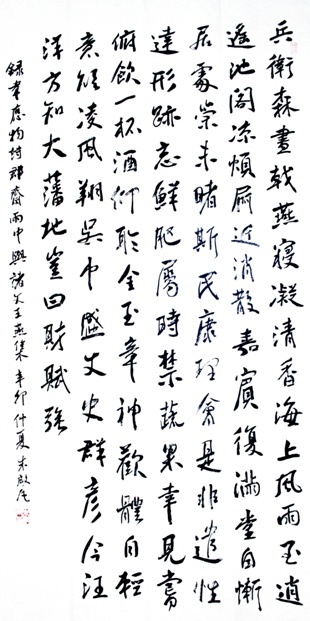 兵衛森畫戟燕寢凝清香海上風雨至逍
遙池閣涼煩疴近消散嘉賓復滿堂自慚
居處崇未睹斯民康理會是非遣性
達形跡忘鮮肥屬時禁蔬果幸見嘗
俯飲一杯酒仰聆金玉章神歡體自輕
意欲凌風翔吳中盛文史群彥今汪
洋方知大藩地豈曰財賦強
錄韋應物詩郡齋雨中與諸文士燕集辛卯仲夏